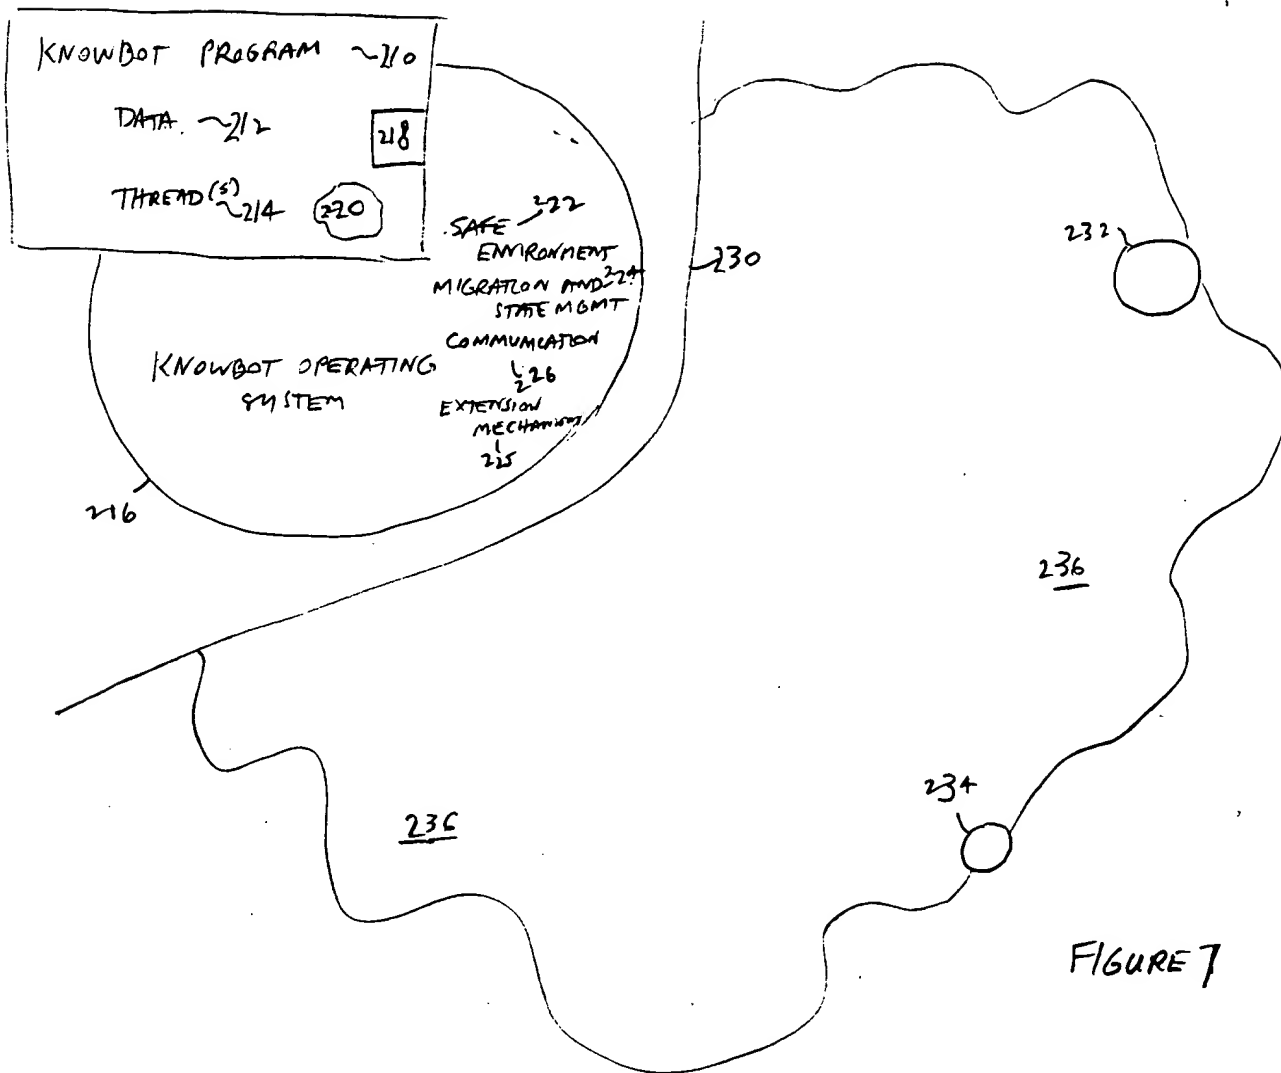 KNOWBOT PROGRAM ~210
DATA. ~212
218
THREAD(S) ~214
220
SAFE 222
ENVIRONMENT
MIGRATION AND 224
STATE MGMT
COMMUNICATION
226
EXTENSION
MECHANISMS
225
KNOWBOT OPERATING
SYSTEM
216
230
232
236
234
236
FIGURE 7